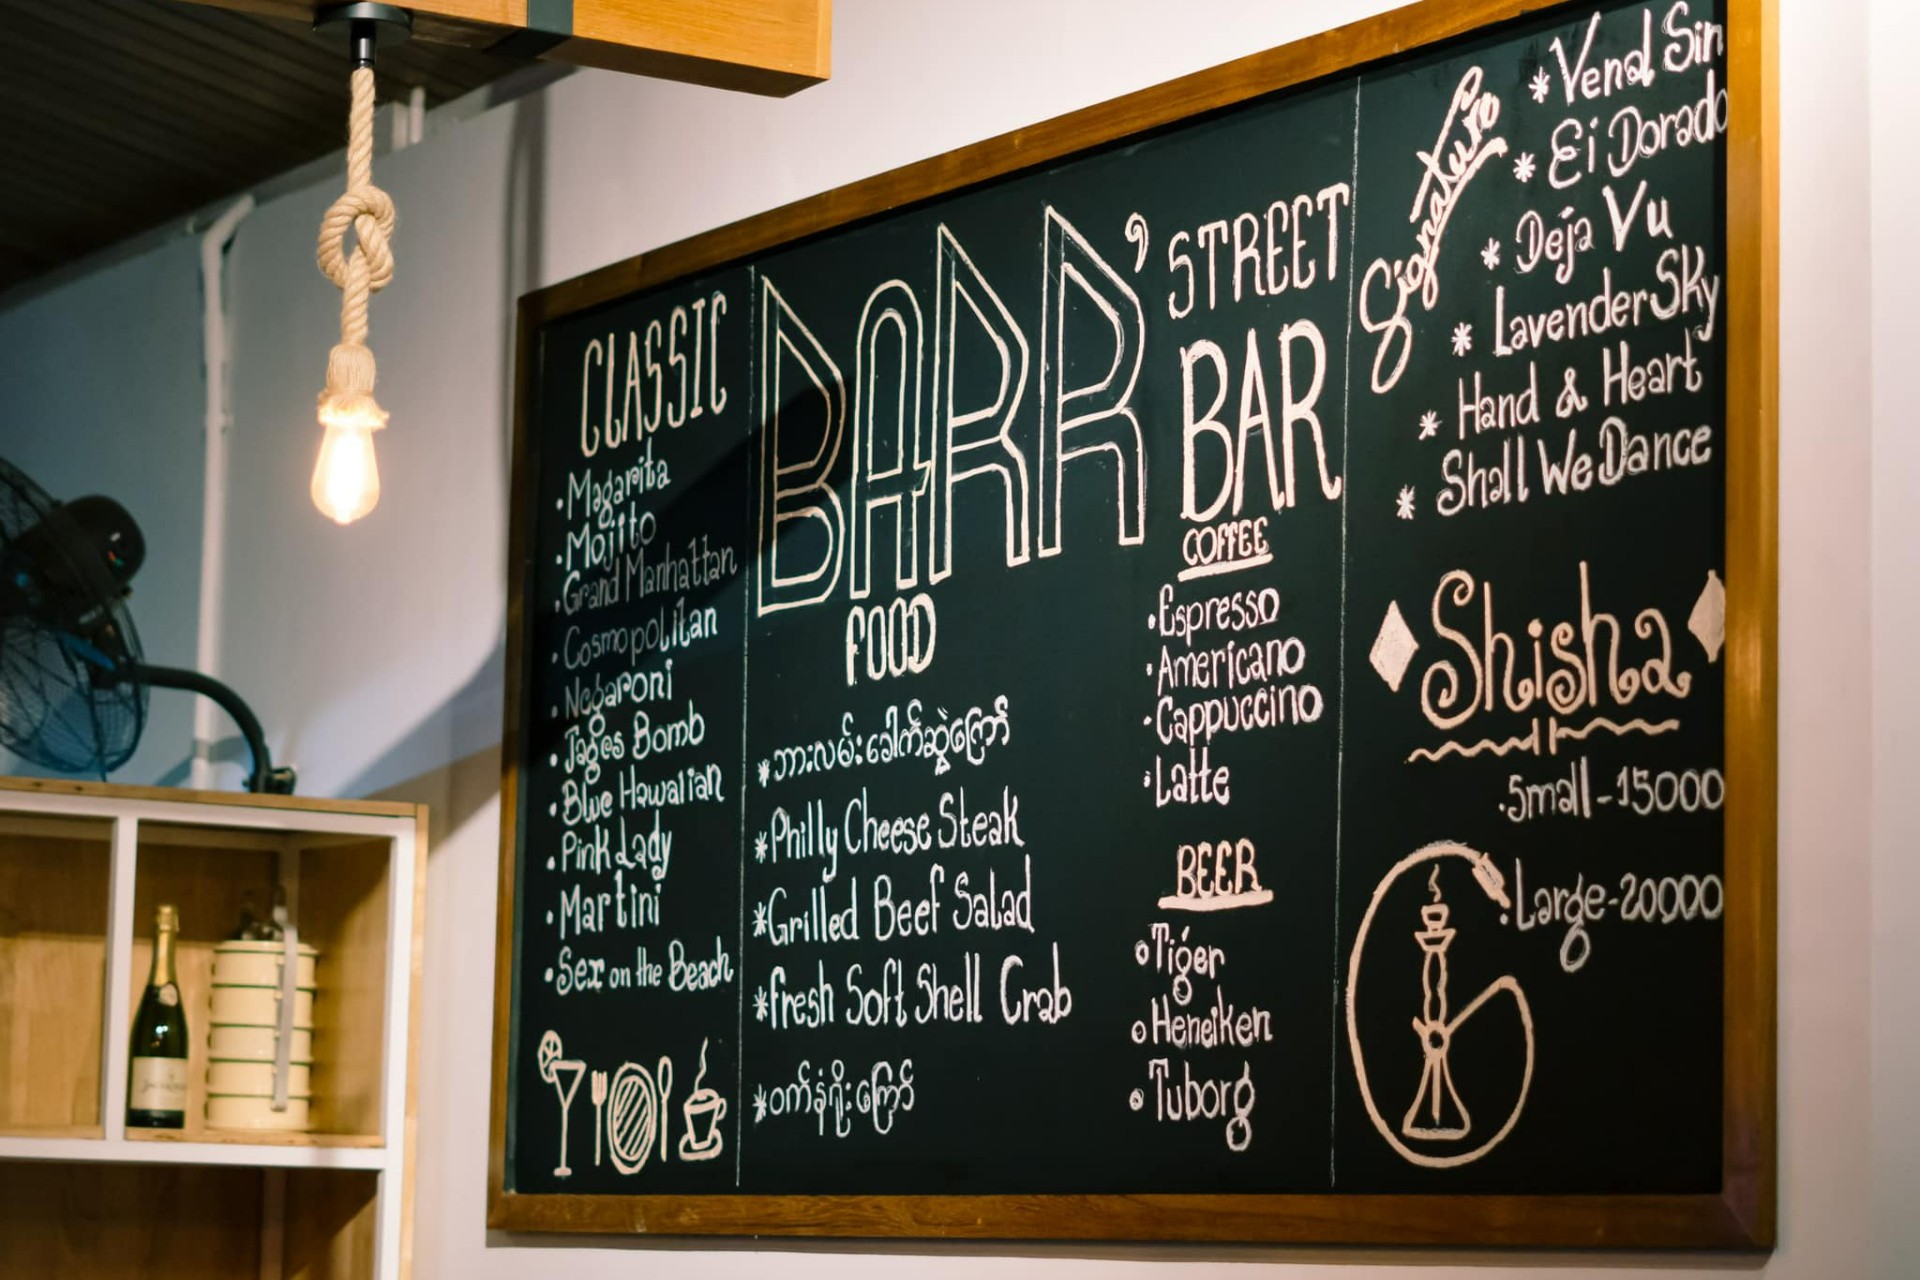 CLASSIC
• Magarita
• Mojito
• Grand Manhattan
• Cosmopolitan
• Negaroni
• Jages Bomb
• Blue Hawaiian
• Pink Lady
• Martini
• Sex on the Beach
BARR'
STREET
BAR
FOOD
* ဘားလမ်းခေါက်ဆွဲကြော်
* Philly Cheese Steak
* Grilled Beef Salad
* Fresh Soft Shell Crab
* ဝက်နံရိုးကြော်
COFFEE
• Espresso
• Americano
• Cappuccino
• Latte
BEER
• Tiger
• Heneiken
• Tuborg
Signature
* Venal Sin
* Ei Dorado
* Deja Vu
* Lavender Sky
* Hand & Heart
* Shall We Dance
Shisha
• Small - 15000
• Large - 20000